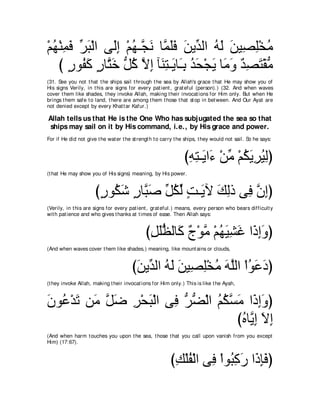 مُخْلِصِينَ لَهُ الدِّينَ فَلَمَّا نَجَّـهُمْ إِلَى الْبَرِّ فَمِنْهُمْ
مُّقْتَصِدٌ وَمَا يَجْحَدُ بِـَايَـتِنَآ إِلاَّ كُلُّ خَتَّارٍ كَفُورٍ )
(31. See you not that the ships sail through the sea by Allah's grace that He may show you of
His signs Verily, in this are signs for every patient, grateful (person).) (32. And when waves
cover them like shades, they invoke Allah, making their invocations for Him only. But when He
brings them safe to land, there are among them those that stop in between. And Our Ayat are
not denied except by every Khattar Kafur.)
Allah tells us that He is the One Who has subjugated the sea so that
ships may sail on it by His command, i.e., by His grace and power.
For if He did not give the water the strength to carry the ships, they would not sail. So he says:
(لِيُرِيَكُمْ مِّنْ ءَايَـتِهِ)
(that He may show you of His signs) meaning, by His power.
(إِنَّ فِى ذَلِكَ لاّيَـتٍ لِّكُلِّ صَبَّارٍ شَكُورٍ)
(Verily, in this are signs for every patient, grateful.) means, every person who bears difficulty
with patience and who gives thanks at times of ease. Then Allah says:
(وَإِذَا غَشِيَهُمْ مَّوْجٌ كَالظُّلَلِ)
(And when waves cover them like shades,) meaning, like mountains or clouds,
(دَعَوُاْ اللَّهَ مُخْلِصِينَ لَهُ الدِّينَ)
(they invoke Allah, making their invocations for Him only.) This is like the Ayah,
(وَإِذَا مَسَّكُمُ الْضُّرُّ فِى الْبَحْرِ ضَلَّ مَن تَدْعُونَ
إِلاَ إِيَّاهُ)
(And when harm touches you upon the sea, those that you call upon vanish from you except
Him) (17:67).
(فَإِذَا رَكِبُواْ فِى الْفُلْكِ)